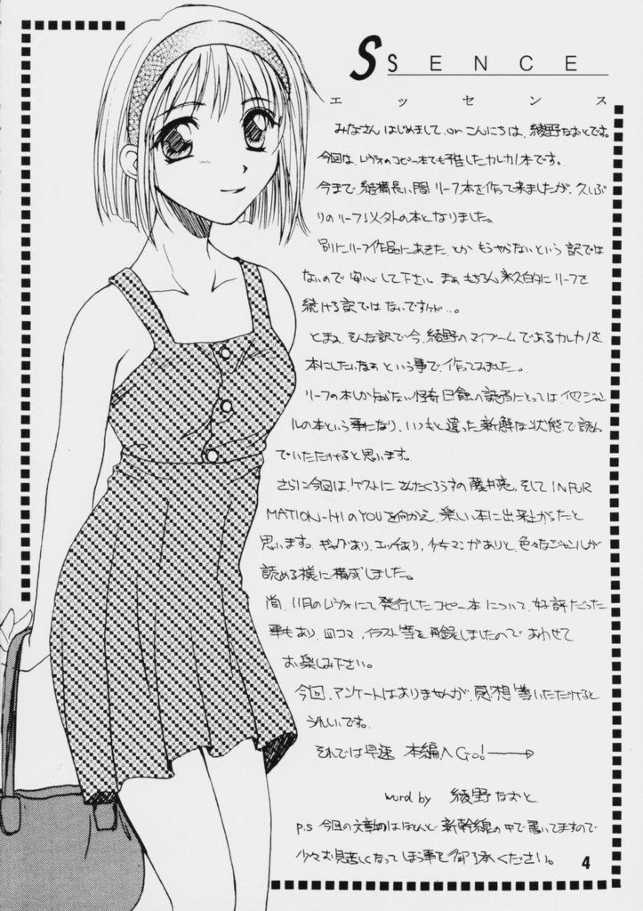 SSENCE
エッセンス
みなさんはじめまして or こんにちは、綾野なおとです。
今回は、レヴォのコピー本でも予告したカレカノ本です。
今まで、結構長い間リーフ本を作って来ましたが、久しぶ
りのリーフ以外の本となりました。
別にリーフ作品にあきた、とか もうやらないという訳では
ないので 安心して下さい。まぁ、もちろん永久的にリーフを
続ける訳ではないですけど…。
とまぁ、そんな訳で今、綾野のマイブームであるカレカノを
本にしたいなぁという事で、作ってみました。
リーフの本しか 怪奇日録の読者にとっては、他ジャン
ルの本という事になり、いつもと違った新鮮な状態で読ん
でいただけると思います。
さらに今回は、ゲストに 藤井亮、そして INFOR
MATION-HIのYOUを向かえ、楽しい本に出来上がったと
思います。ギャグあり、エッチあり、少女マンガありと、色々なジャンルが
読める様に構成しました。
尚、11月のレヴォにて発行したコピー本について、好評だった
事もあり、四コマ、イラスト等を再録しましたので あわせて
お楽しみ下さい。
今回、アンケートはありませんが、感想等いただけると
うれしいです。
それでは早速 本編へGo!→
word by 綾野なおと
p.s 今回の文章はほとんど新幹線の中で書いてますので
少々お見苦しくなってしまう事を御了承ください。
4